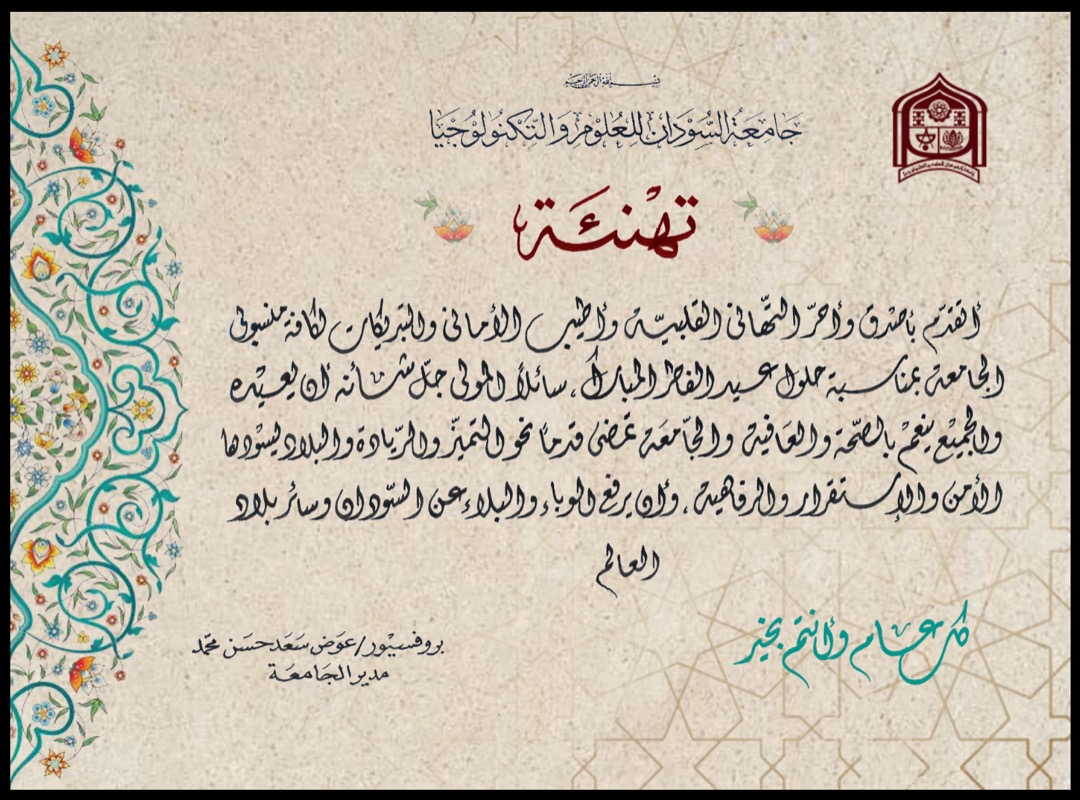 بسم الله الرحمن الرحيم
جَامعَةُ السُّودَان للعُلوُم وَالتِّكنُولوُجيَا
تهنئة
أتقدّم بأصدق وأحرّ التّهاني القلبيّة وأطيب الأماني والتبريكات لكافة منسوبي
الجامعة بمناسبة حلول عيد الفطر المبارك، سائلاً المولى جلّ شأنه أن يعيده
والجميع ينعم بالصّحة والعافية والجامعة تمضي قدماً نحو التميّز والرّيادة والبلاد يسودها
الأمن والإستقرار والرفاهية، وأن يرفع الوباء والبلاء عن السّودان وسائر بلاد
العالم
كل عام وأنتم بخير
بروفسيور/عوَض سَعَد حسَن محمّد
مدير الجَامعَة